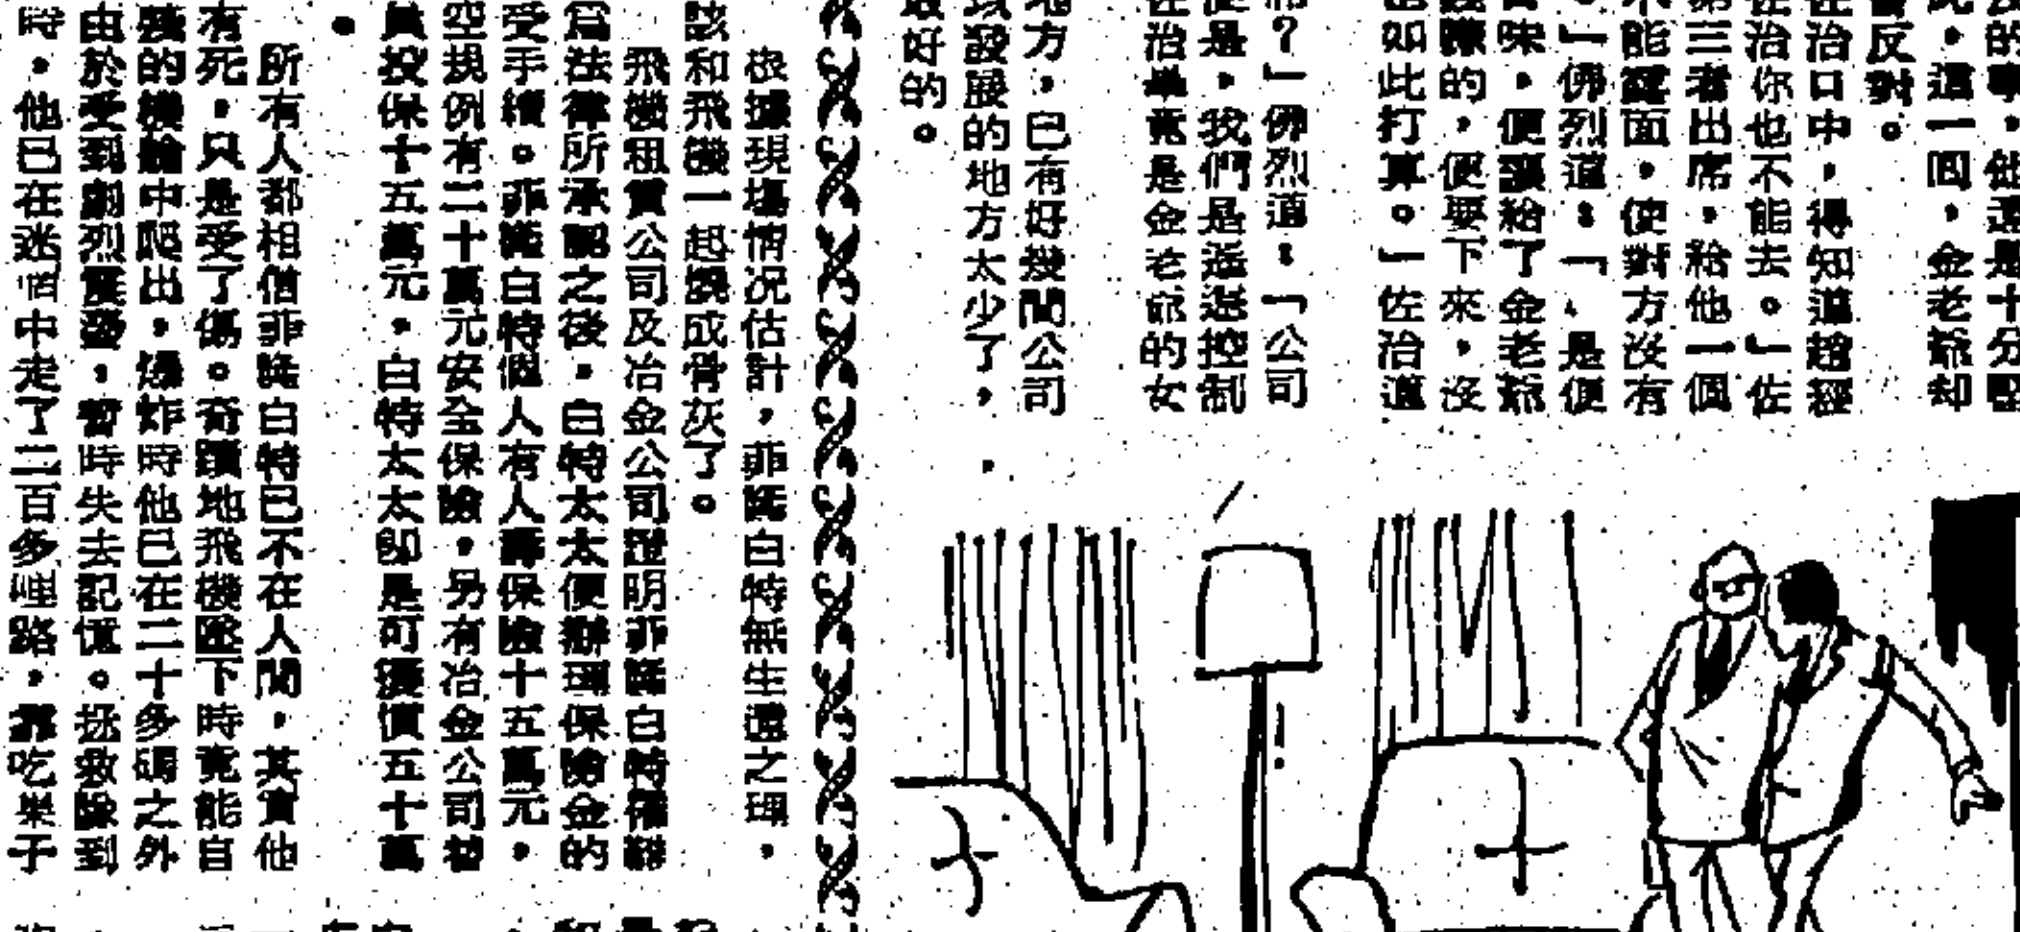 的事,他還是十分堅
此,這一回,金老爺却
會反對。
佐治口中,得知道趙經
佐治你也不能去。」佐
第三者出席,給他一個
不能露面,使對方沒有
。」佛烈道:「,是便
味,便讓給了金老爺
的,便要下來,沒
如此打算。」佐治道
?」佛烈道:「公司
便是,我們是遙遙控制
佐治畢竟是金老爺的女
地方,已有好幾間公司
發展的地方太少了,
最好的。
根據現場情況估計,菲諾白特無生還之理,
該和飛機一起燒成骨灰了。
飛機租賃公司及冶金公司證明菲諾白特罹難
爲法律所承認之後,白特太太便辦理保險金的
受手續。菲諾白特個人有人壽保險十五萬元,
空規例有二十萬元安全保險,另有冶金公司替
員投保十五萬元,白特太太卽是可獲償五十萬
。
所有人都相信菲諾白特已不在人間,其實他
有死,只是受了傷。奇蹟地飛機墜下時竟能自
殘的機艙中爬出,爆炸時他已在二十多碼之外
由於受到劇烈震盪,暫時失去記憶。拯救隊到
時,他已在迷惘中走了二百多哩路,靠吃果子